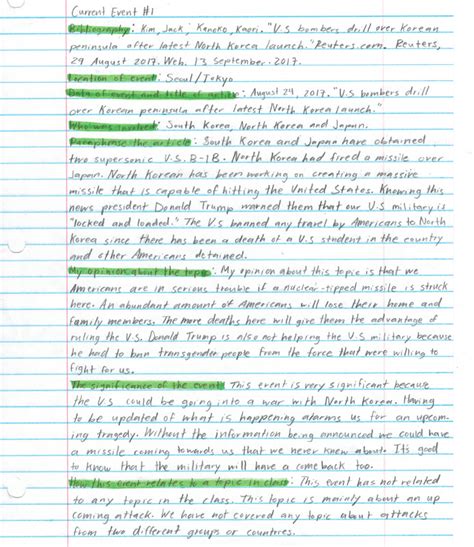 Current Event #1
Bibliography: Kim, Jack, Kaneko, Kaori. "U.S bombers drill over Korean
peninsula after latest North Korea launch." Reuters.com. Reuters,
29 August 2017. Web. 13 September. 2017.
Location of event: Seoul/Tokyo
Date of event and title of article: August 29, 2017. "U.S bombers drill
over Korean peninsula after latest North Korea launch."
Who was involved: South Korea, North Korea and Japan.
Paraphrase the article: South Korea and Japan have obtained
two supersonic U.S. B-1B. North Korea had fired a missile over
Japan. North Korean has been working on creating a massive
missile that is capable of hitting the United States. Knowing this
news president Donald Trump warned them that our U.S military is
"locked and loaded." The U.S banned any travel by Americans to North
Korea since there has been a death of a U.S student in the country
and other Americans detained.
My opinion about the topic: My opinion about this topic is that we
Americans are in serious trouble if a nuclear-tipped missile is struck
here. An abundant amount of Americans will lose their home and
family members. The more deaths here will give them the advantage of
ruling the U.S. Donald Trump is also not helping the U.S military because
he had to ban transgender people from the force that were willing to
fight for us.
The significance of the event: This event is very significant because
the U.S could be going into a war with North Korea. Having
to be updated of what is happening alarms us for an upcom-
ing tragedy. Without the information being announced we could have
a missile coming towards us that we never knew about. It's good
to know that the military will have a come back too.
How this event relates to a topic in class: This event has not related
to any topic in the class. This topic is mainly about an up
coming attack. We have not covered any topic about attacks
from two different groups or countries.